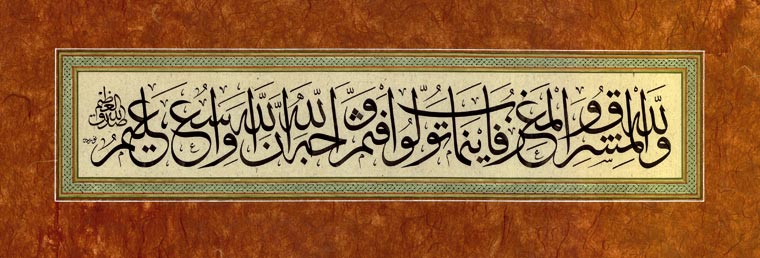 ولله المشرق والمغرب فاينما تولوا فثم وجه الله ان الله واسع عليم
صدق الله العظيم